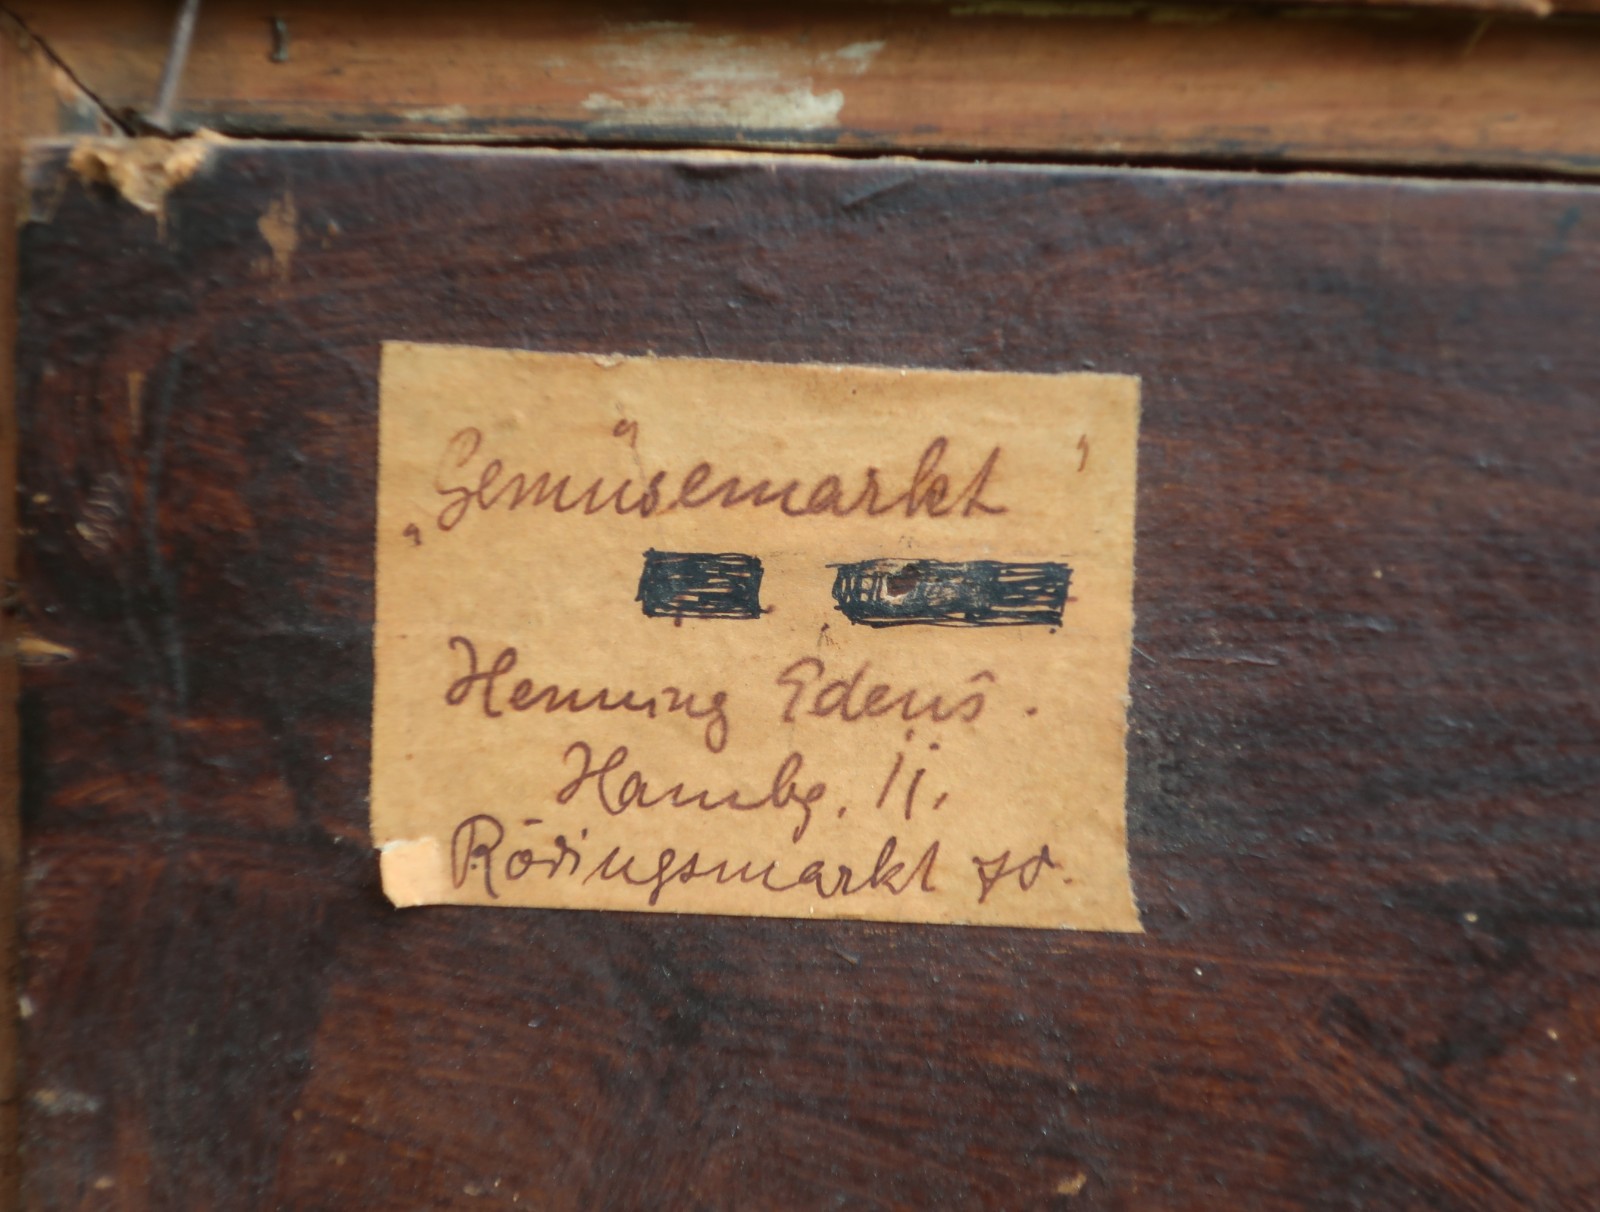 „Gemüsemarkt"
Henning Edens.
Hambg. 11.
Rödingsmarkt 70.